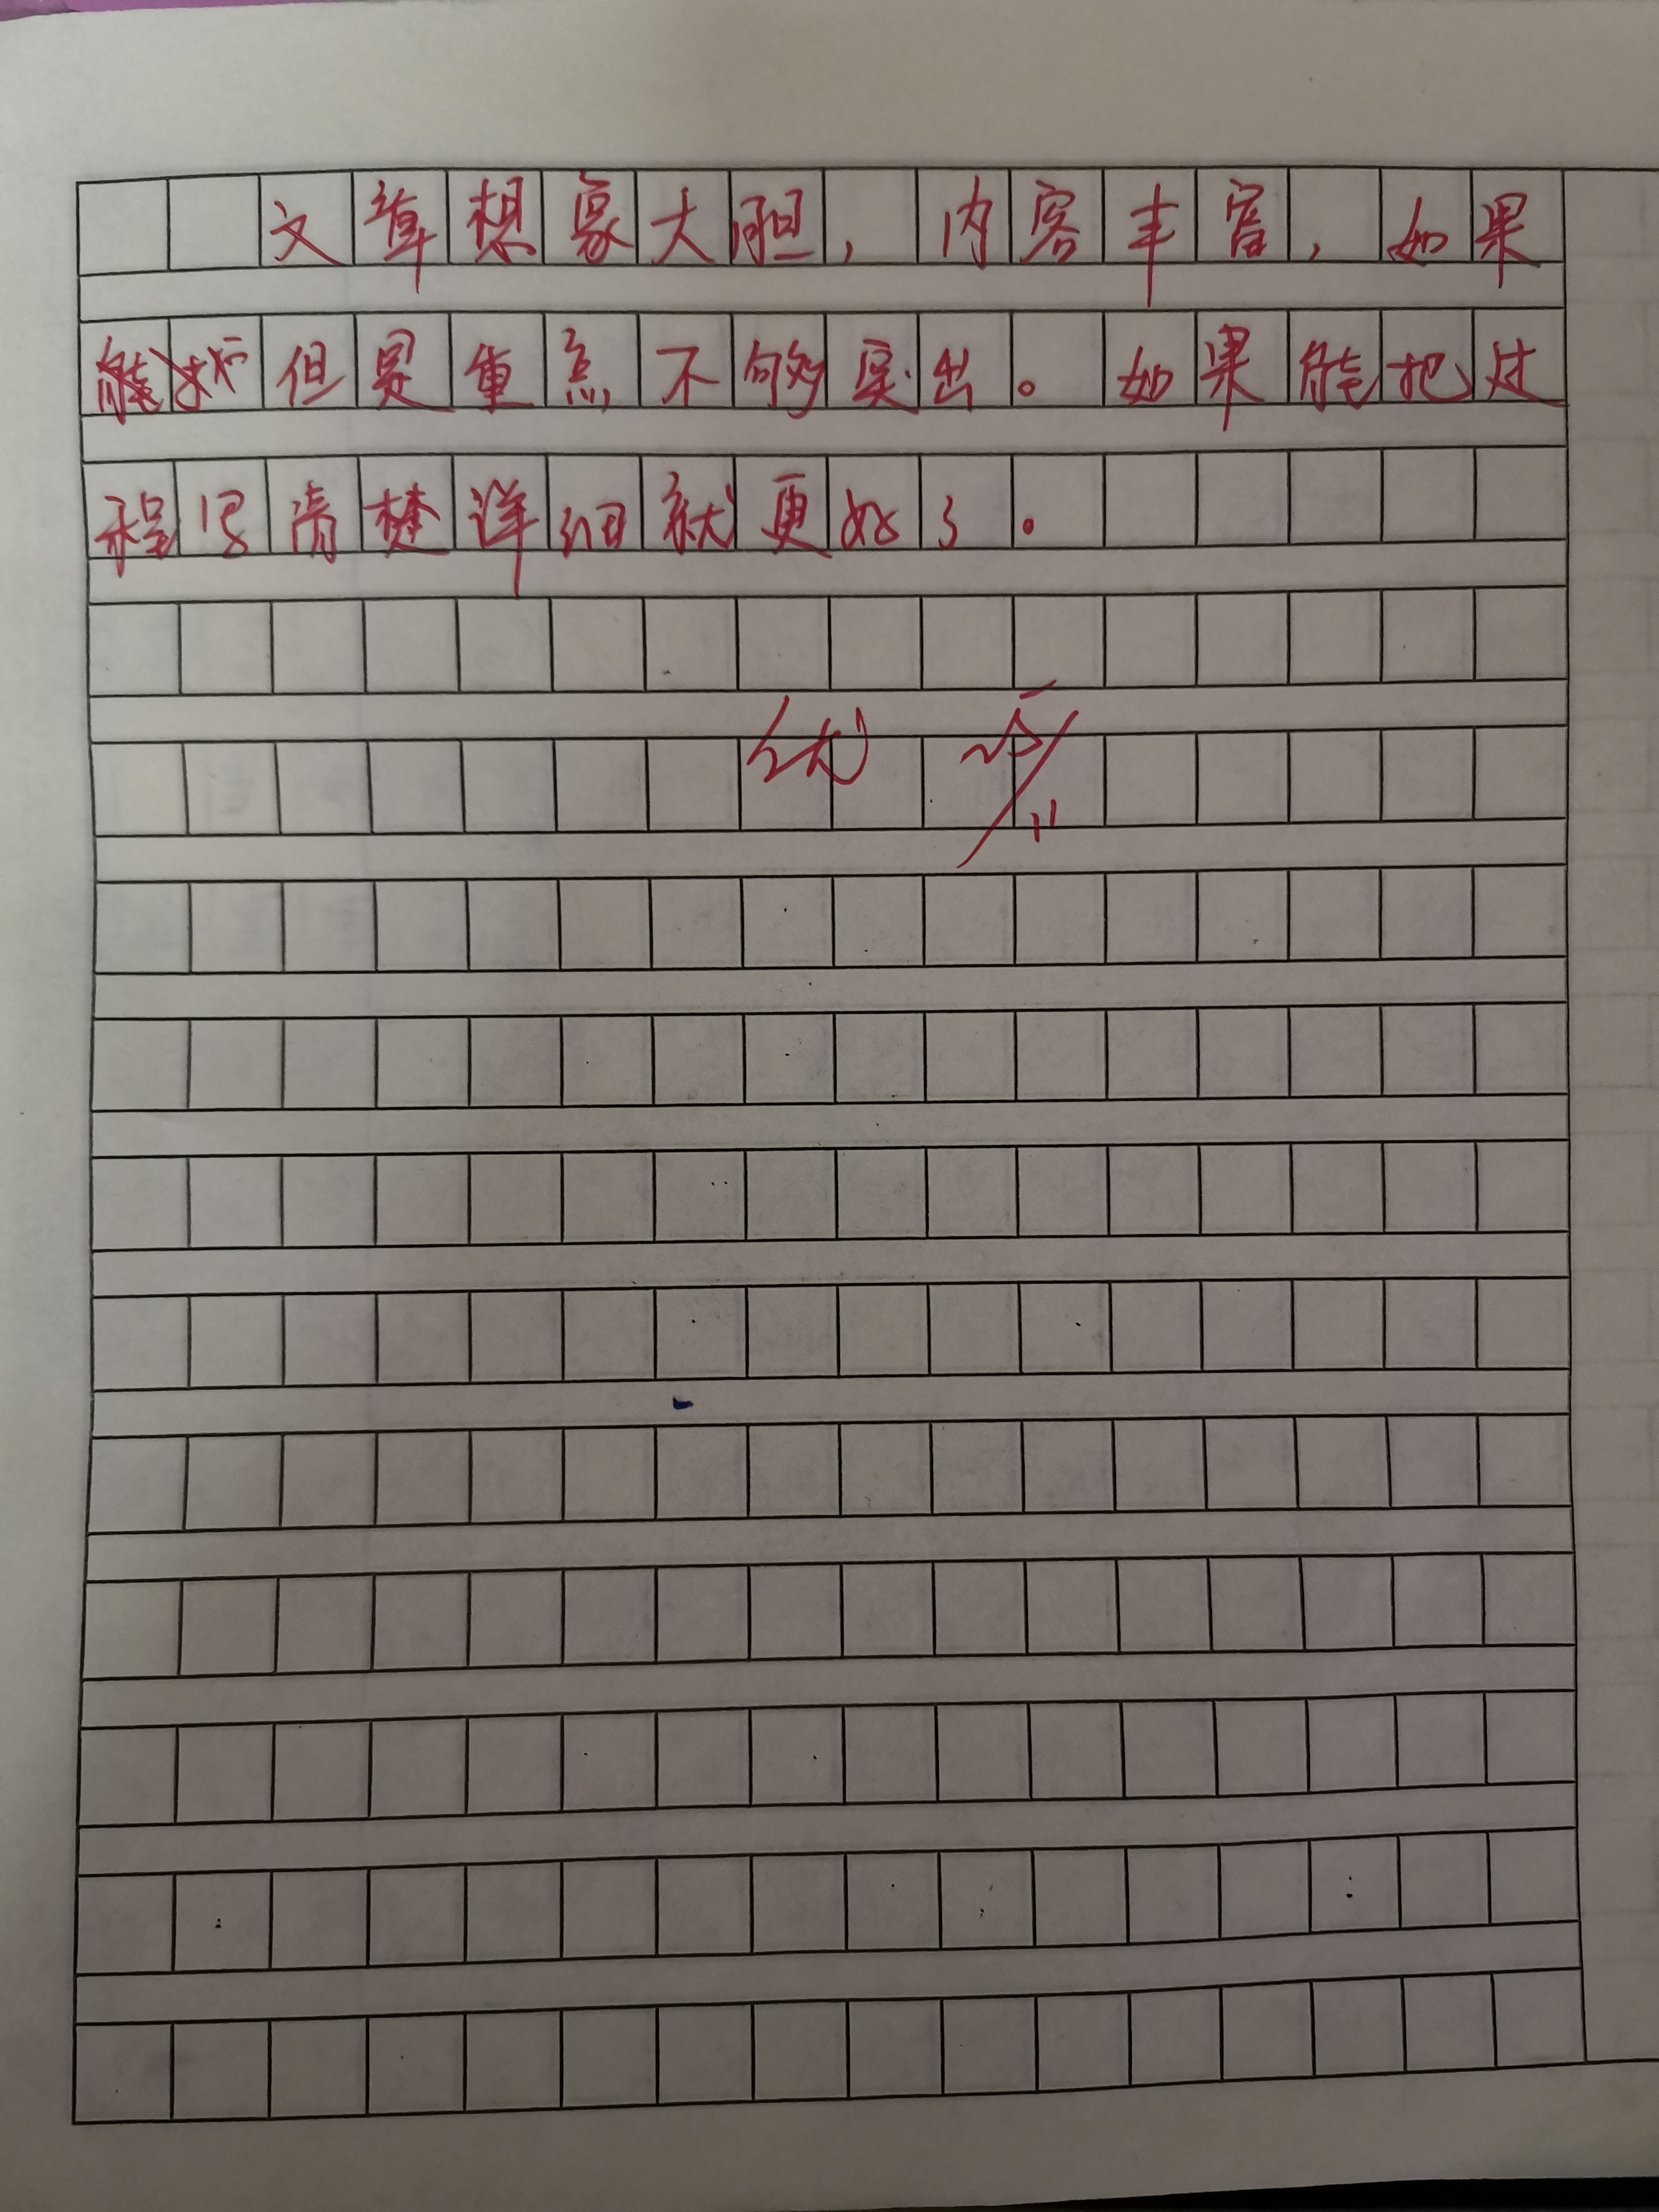 文章想象大胆，内容丰富，如果
能把但是重点不够突出。如果能把过
程写清楚详细就更好了。
优